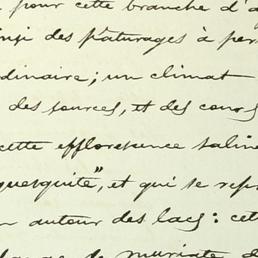 pour cette branche d'a
insi des pâturages à per
dinaire ; un climat
des sources, et des cours
cette efflorescence saline
quesquite", et qui se repr
autour des lacs : cet
de muriate d